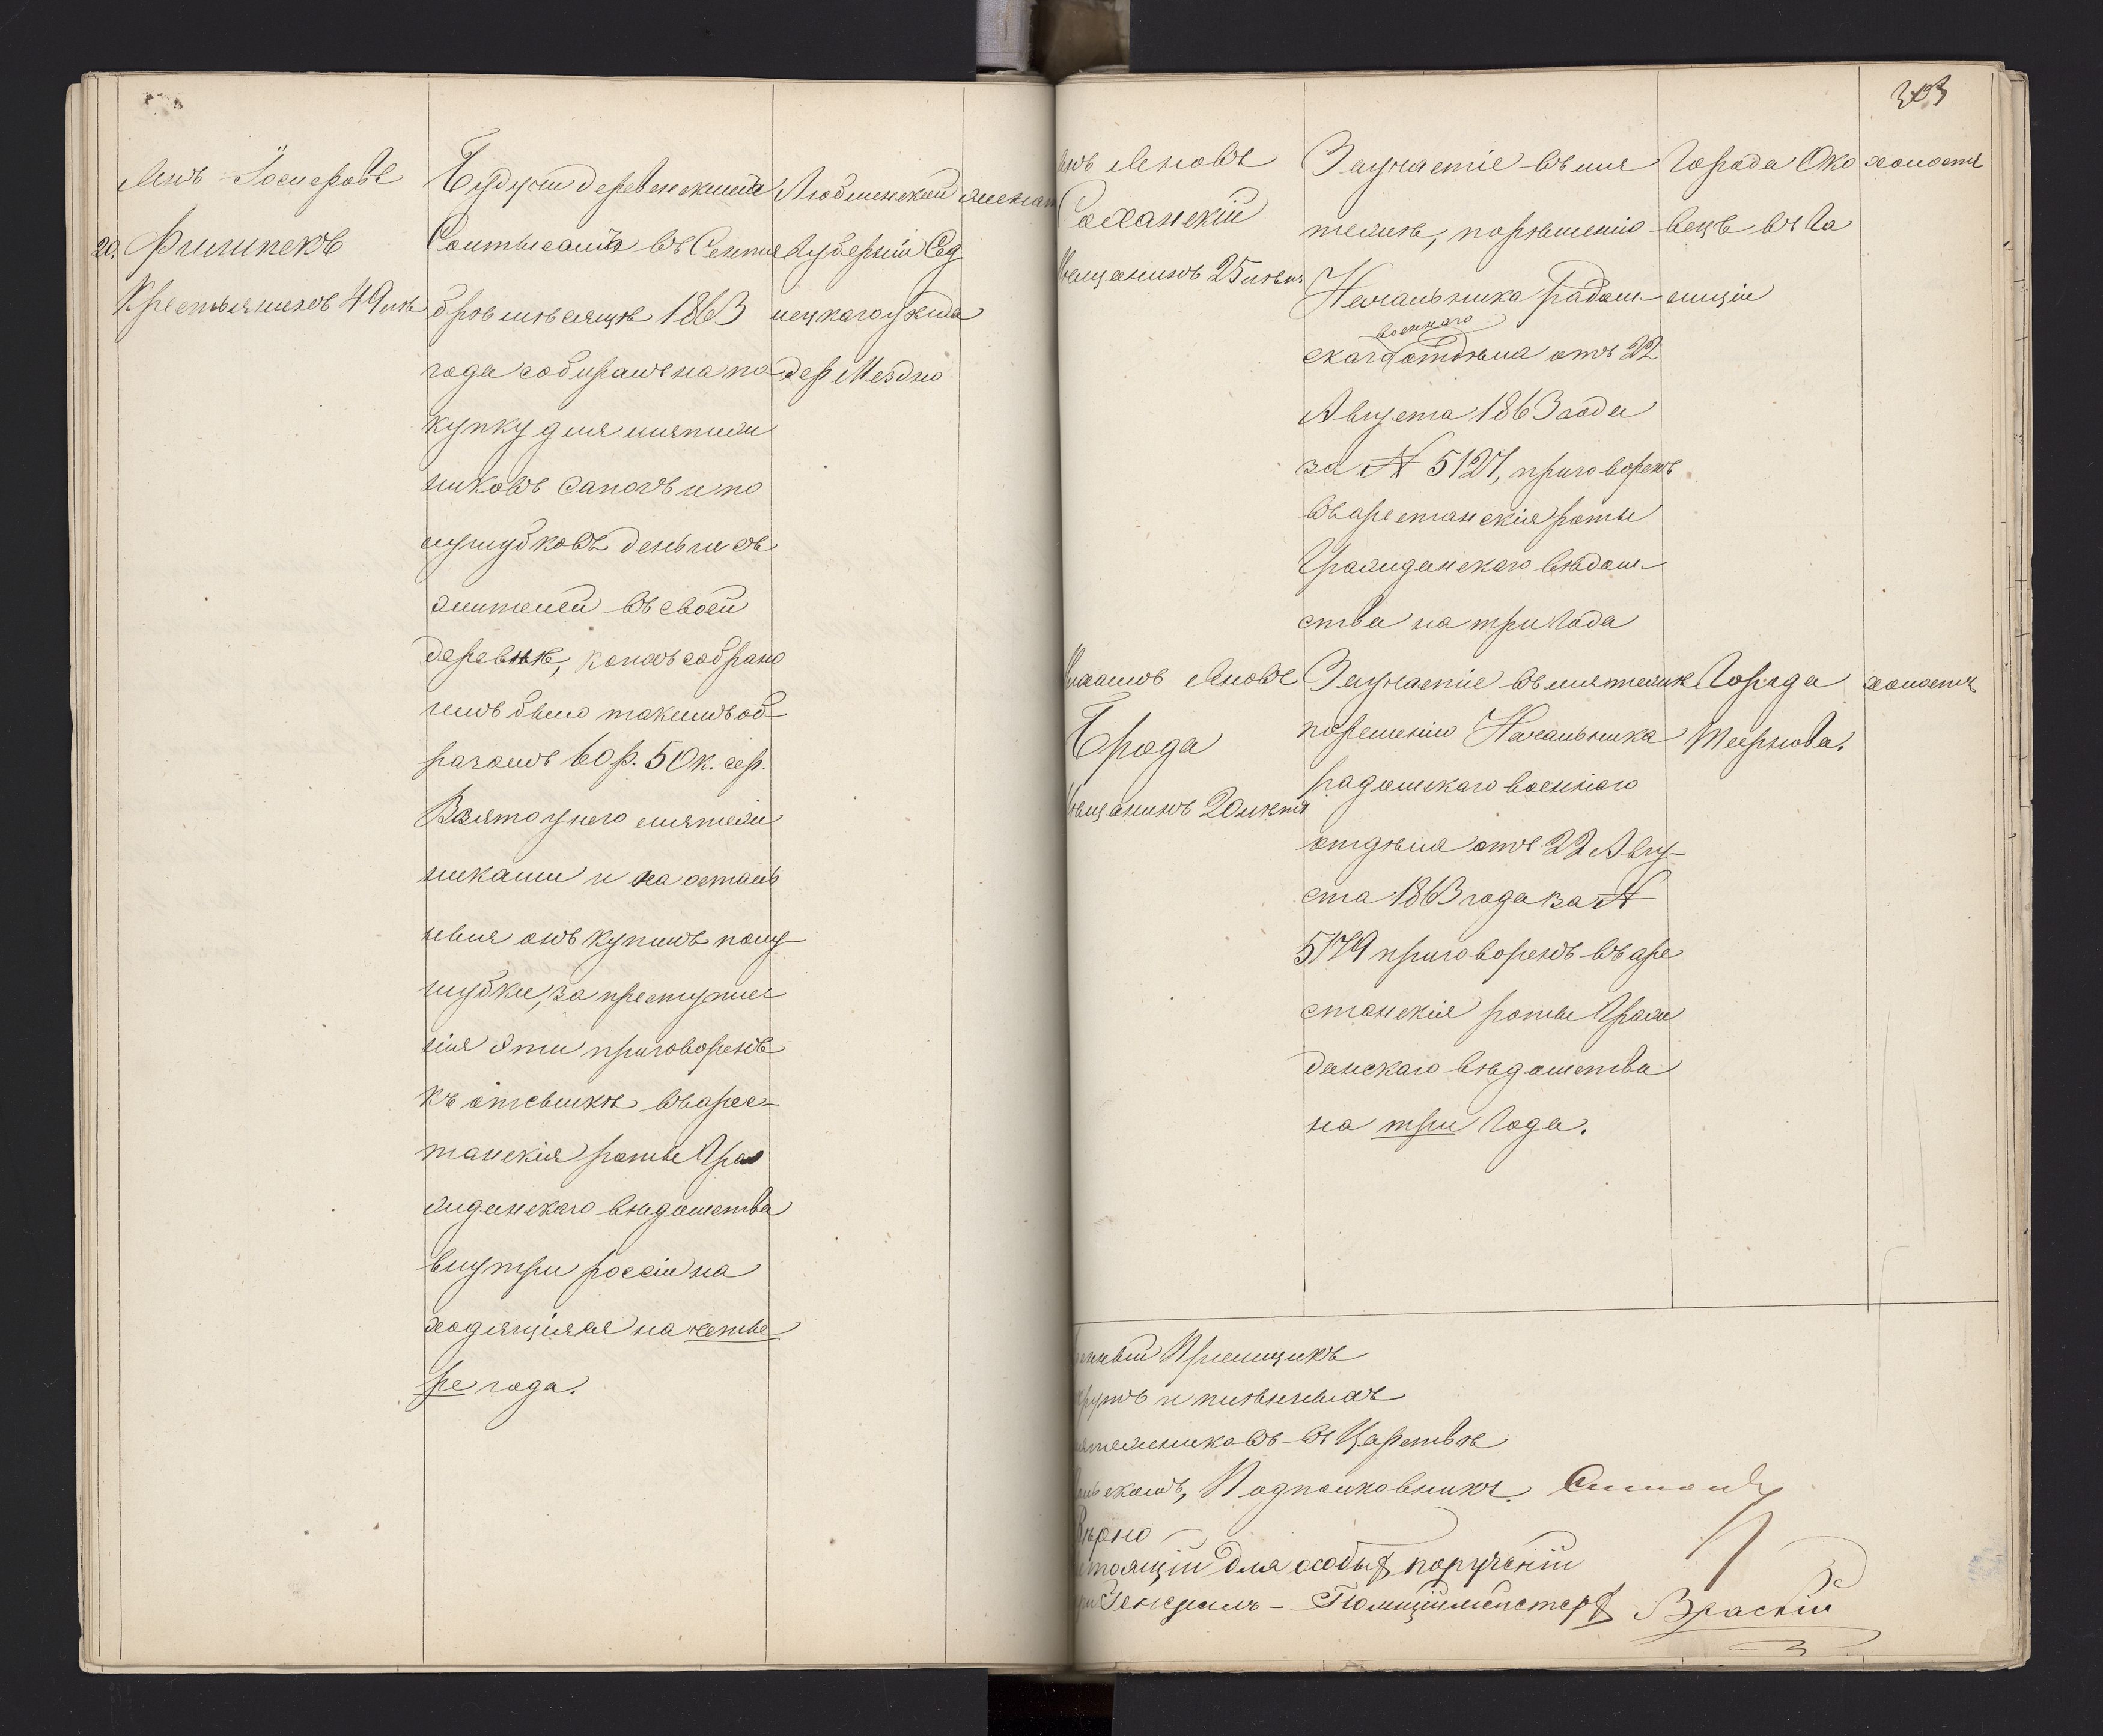 Янъ Iосифовъ
20. Филипекъ
Крестьянинъ 49 лѣ
Будучи деревенскимъ
Солтысомъ въ Сентя
бръ мѣсяцѣ 1863
года собиралъ на по
купку для мятеж
никовъ сапоговъ и по
лушубковъ деньги съ
жителей въ своей
деревнѣ, коихъ собрано
имъ было такимъ об-
разомъ 60 р. 50 к. сер.
Взято у него мятеж
никами и на осталь
ныя онъ купилъ полу-
шубки, за преступле
нія эти приговоренъ
къ отсылкѣ въ арес-
танскія роты Граж
данскаго вѣдомства
внутри россіи на
ходящіяся на четы
ре года.
Люблинской
Губерніи Сед
лецкаго уѣзда
дер.
женат
303
Янъ Яновъ
Соханскій
Мѣщанинъ 25 лѣтъ
За участіе въ мя
тежѣ, по рѣшенію
Начальника Радом
военнаго
скаго отдѣла отъ 22
Августа 1863 года
за № 5127, приговоренъ
въ арестанскія роты
Гражданскаго вѣдом-
ства на три года
Города Око
вецъ въ Га
лиціи
холостъ
Михаилъ Яновъ
Брода
Мѣщанинъ 20 лѣтъ
За участіе въ мятежѣ
по рѣшенію Начальника
радомскаго военнаго
отдѣла отъ 22 Авгу-
ста 1863 года за №
5179 приговоренъ въ аре
станскія роты Граж
данскаго вѣдомства
на три года.
Города
Тырнова.
холостъ
Пріемщикъ
рутъ и плѣнныхъ
мятежниковъ въ Царствѣ
Польскомъ, Подполковникъ
Вѣрно
Состоящій для особыхъ порученій
при Генералъ-Полиціймейстерѣ Враскій